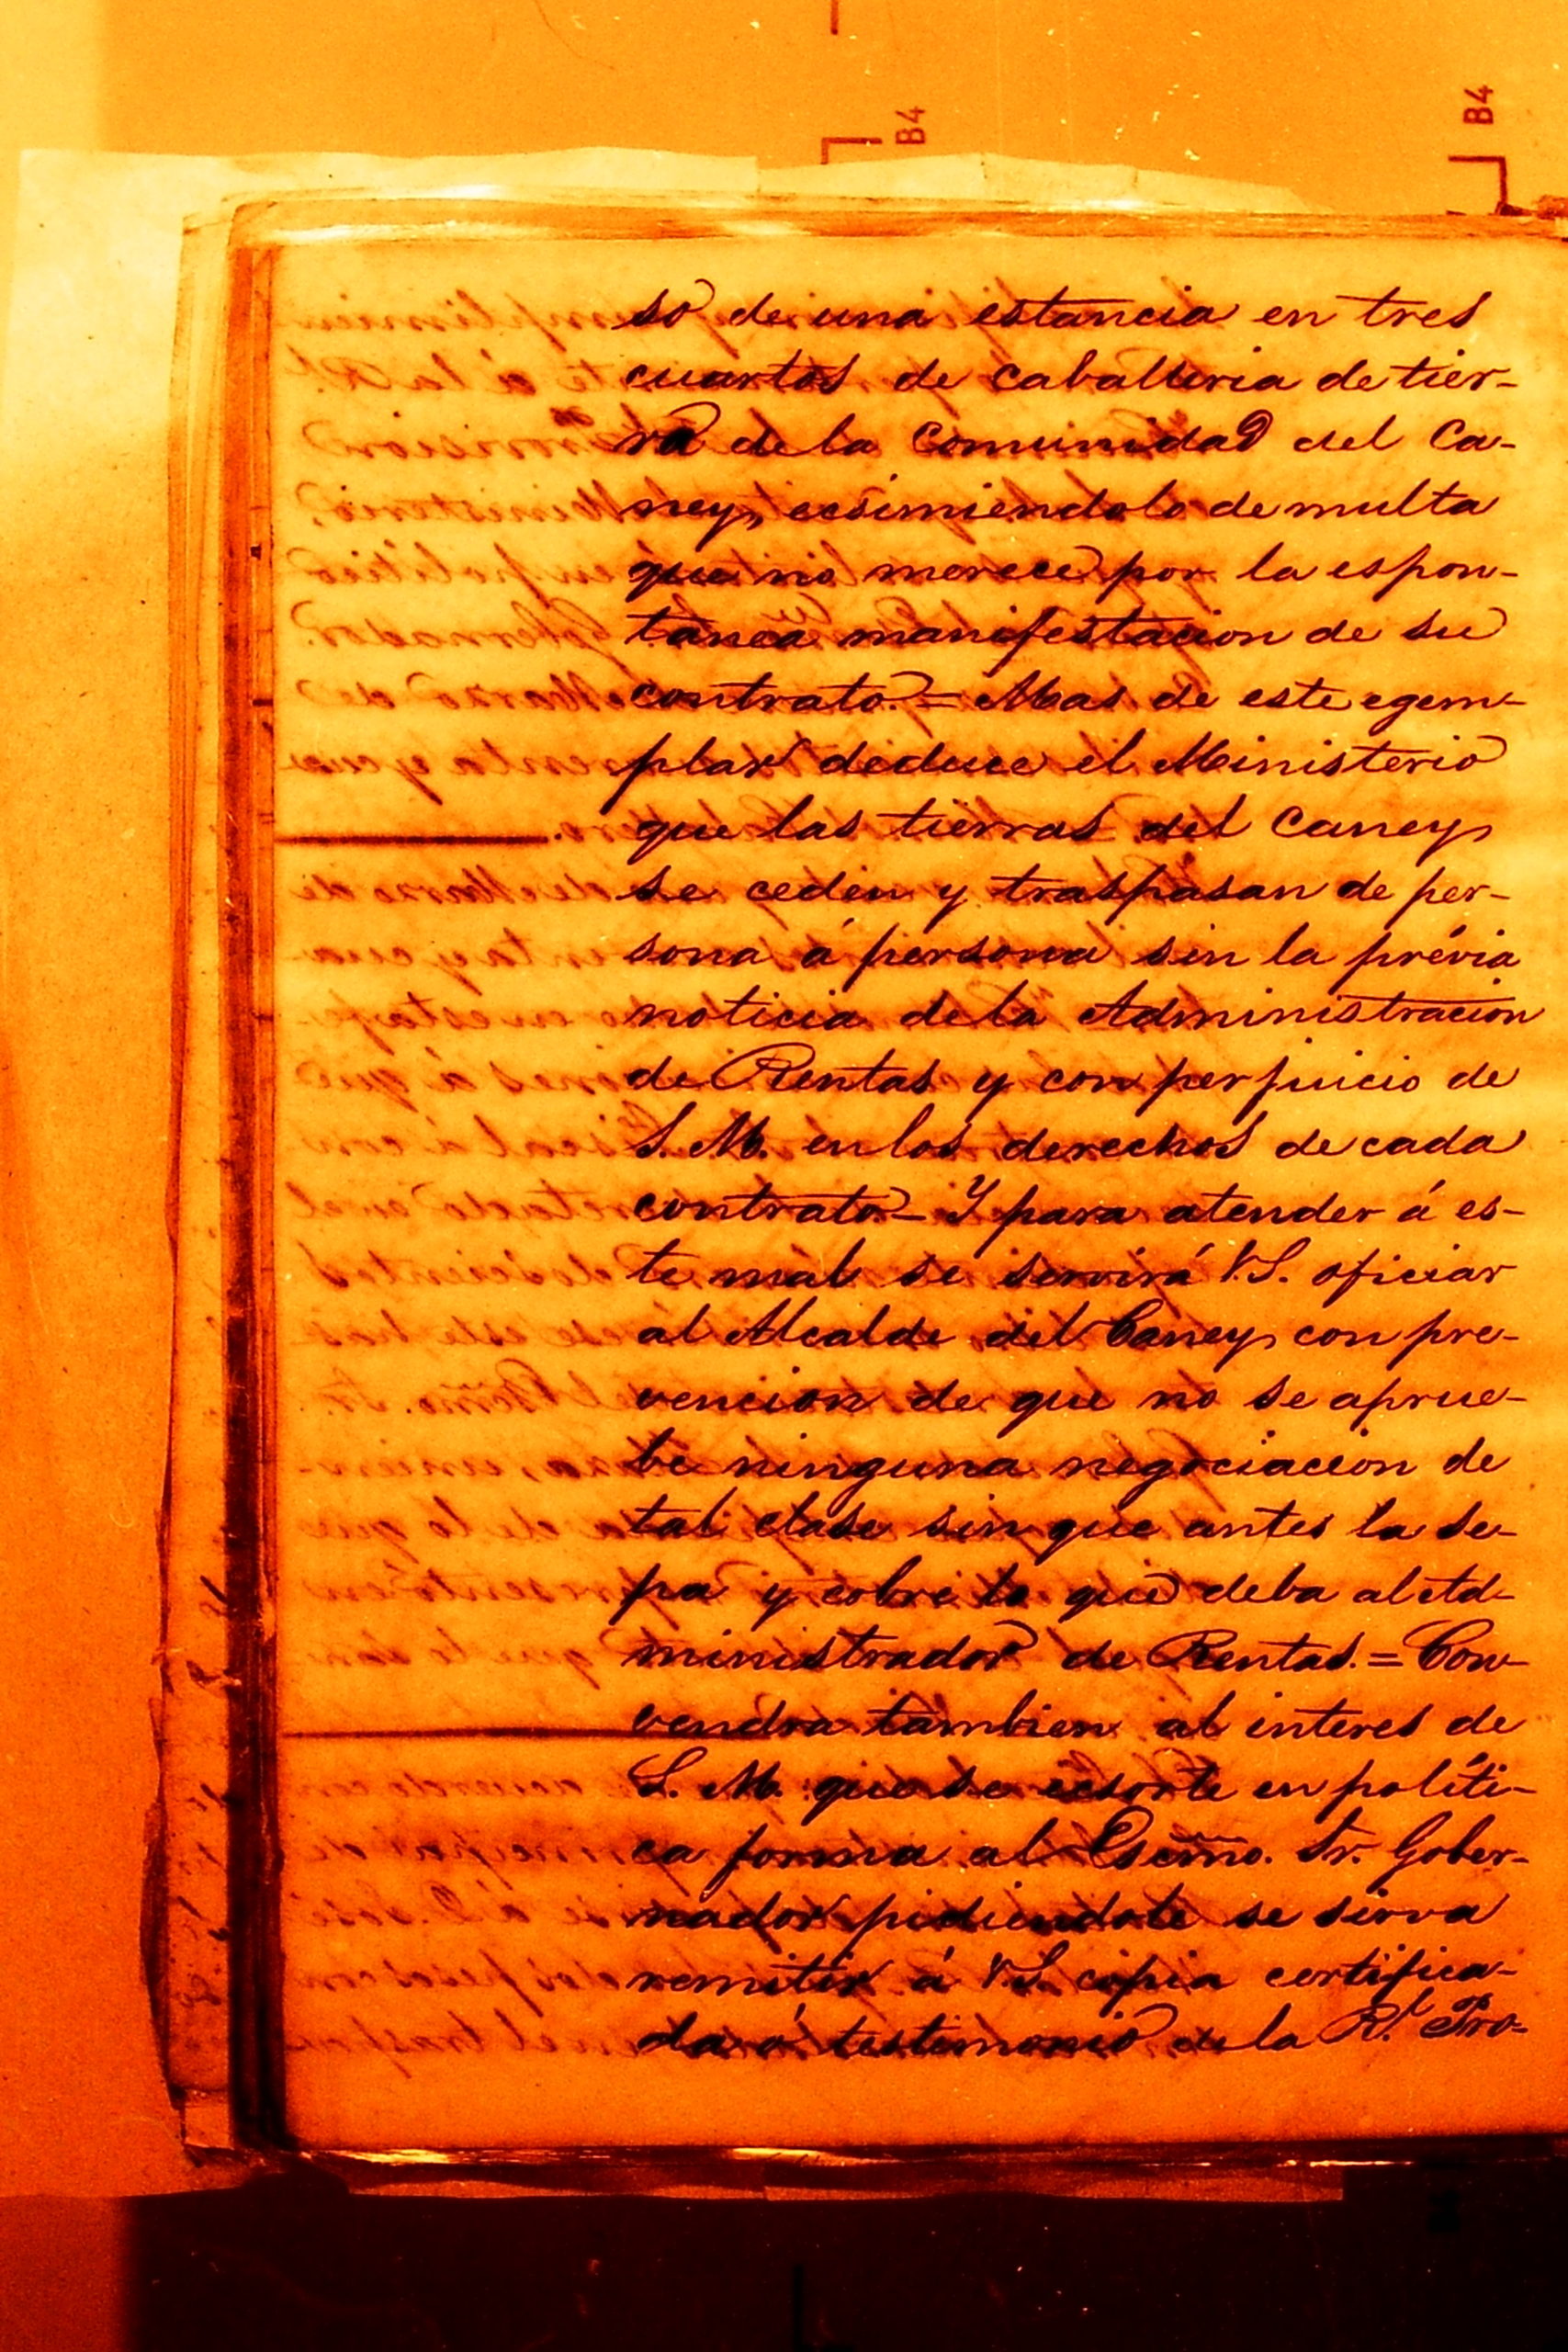 B4
B4
so de una estancia en tres
cuartos de caballeria de tier-
ra de la Comunidad del Ca-
ney, ecsimiendolo de multa
que no merece por la espon-
tanea manifestacion de su
contrato.= Mas de este egem-
plar deduce el Ministerio
que las tierras del Caney
se ceden y traspasan de per-
sona á persona sin la prévia
noticia de la Administracion
de Rentas y con perjuicio de
S. M. en los derechos de cada
contrato_ Y para atender á es-
te mal se servirá V.S. oficiar
al Alcalde del Caney con pre-
vencion de que no se aprue-
be ninguna negociacion de
tal clase sin que antes la se-
pa y cobre lo que deba al Ad-
ministrador de Rentas.= Con-
vendra tambien al interes de
S. M. que se ecsorte en políti-
ca forma al Escmo. Sr. Gober-
nador pidiendole se sirva
remitir á V.S. copia certifica-
da ó testimonio de la Rl. Pro-